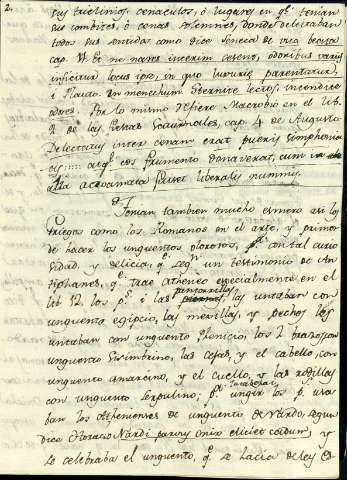 2.
sus triclinios, cenaculos, ò lugares en q.e tenian
sus combites, ò cenas solemnes, donde deleitaban
todos sus sentidos como dice Seneca de vita beata
cap. 11. Et ne nares interim cesent, odoribus variis
inficitur locus ipse, in quo luxuriæ parentatur,
i Plauto in menechum Sternite lectos, incendite
odores. Por lo mismo refiere Macrobio en el lib.
2 de las fiestas Saturnales, cap. 4 de Augusto
Delectatus inter cenam erat pueris simphonia
eos frumento donaverat, cum
alia acroamata fuiset liberalis nummis.
Tenian tambien mucho esmero asi los
Griegos como los Romanos en el arte, y primor
de hacer los unguentos olorosos, con tal curio
sidad, y delicia, q.e seg.n un testimonio de An
tiphanes, q.e trae Atheneo especialmente en el
lib 12 los p.s i las pantorrillas las untaban con
unguento egipcio, las mexillas, y pechos las
untaban con unguento phenicio, los 2 brazos con
unguento Sisimbrino, las cejas, y el cabello, con
unguento amarcino, y el cuello, y las rodillas
con unguento serpulino; ungir los p.s usa
ban los Athenienses de unguento de Nardo, segun
dice Horacio Nardi parvus onix eliciet cadum, y
se celebraba el unguento, q.e se hacia de